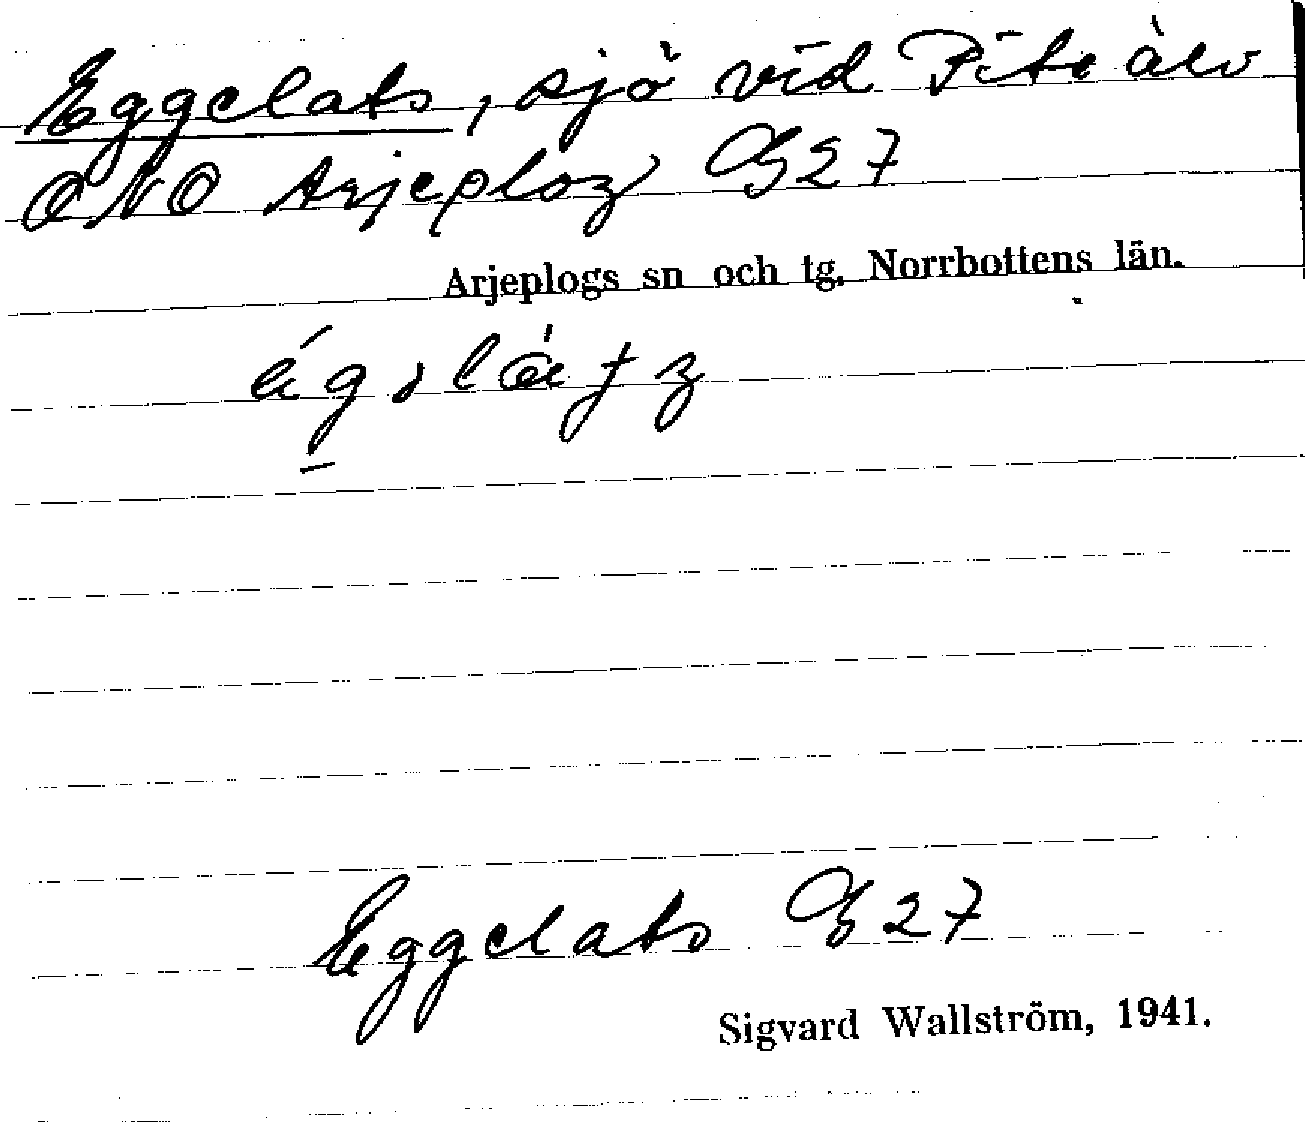 Eggelats, sjö vid Pite älv
ONO Arjeplog G27
Arjeplogs sn och tg, Norrbottens län.
Eggelats G27
Sigvard Wallström, 1941.